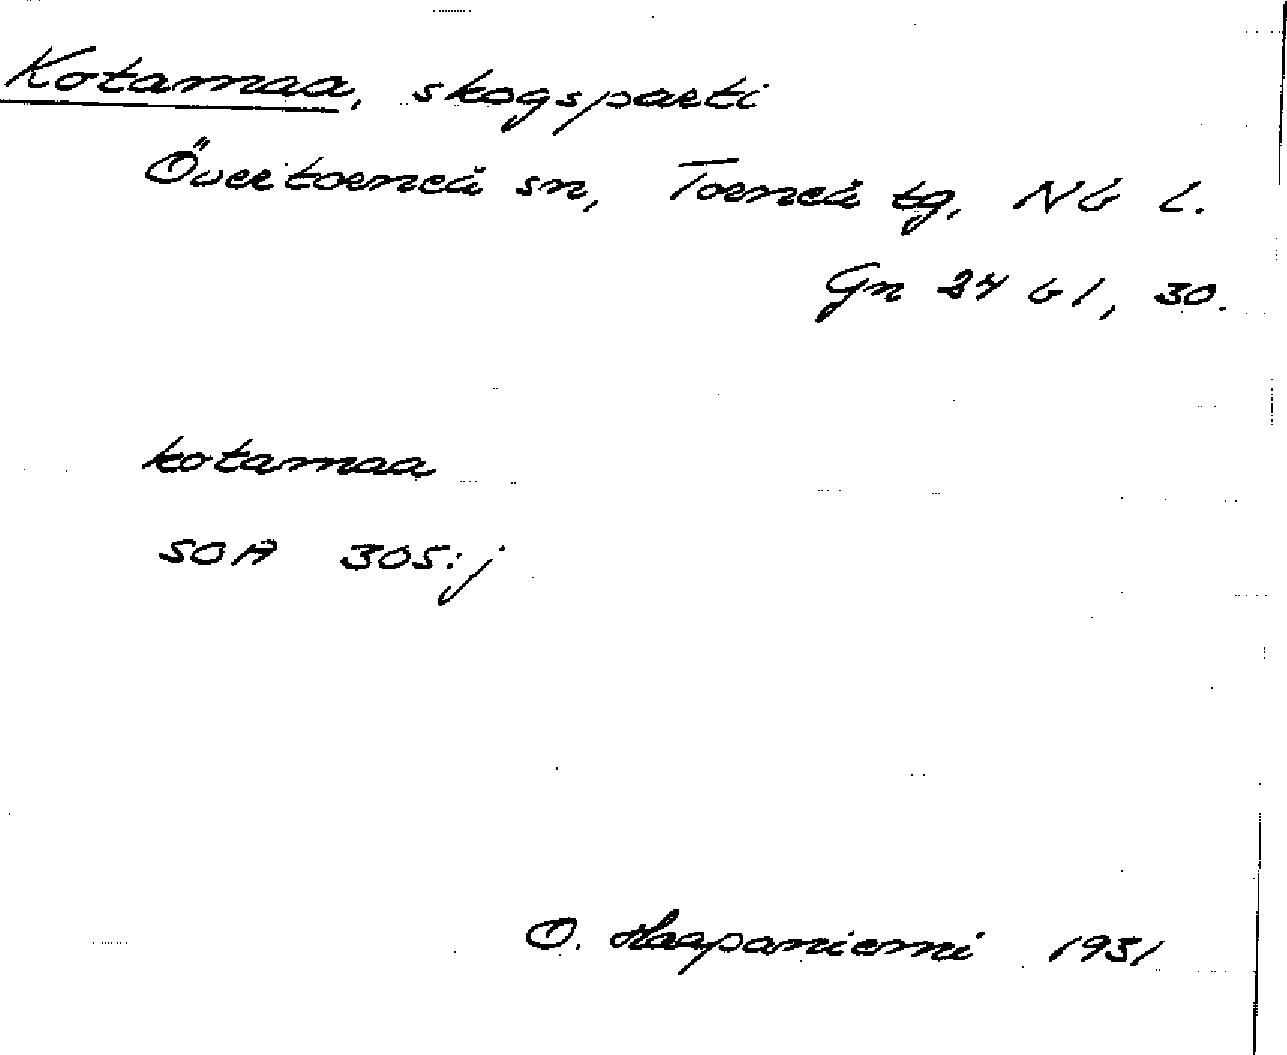 Kotamaa, skogsparti
Övertorneå sn, Torneå tg, Nb l.
Gn 24 b 1, 30.
kotamaa
SOA 305:j
O. Haapaniemi 1931